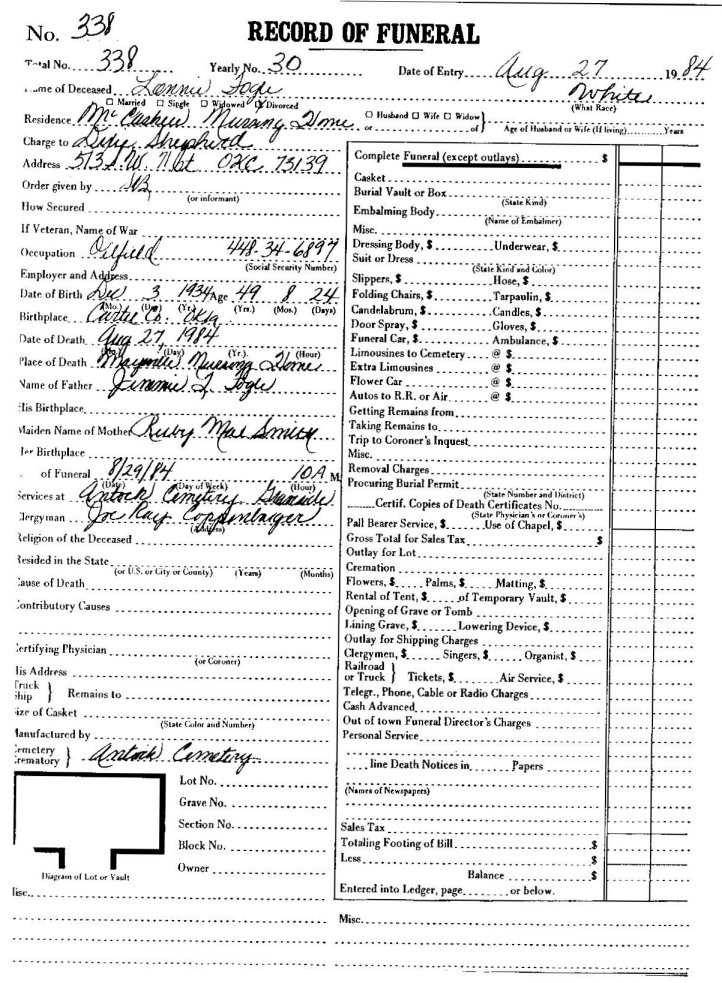 No. 338 RECORD OF FUNERAL
Total No. 338 Yearly No. 30 Date of Entry Aug 27 1984
Name of Deceased Lonnie White
☐ Married ☐ Single ☐ Widowed ☑ Divorced (What Race)
Residence Nursing Home ☐ Husband ☐ Wife ☐ Widow } or of Age of Husband or Wife (If living) Years
Charge to Shepherd
Address 513 S.W. OKC 73139
Order given by
(or informant)
How Secured
If Veteran, Name of War
Occupation Oilfield 448-34-6897
(Social Security Number)
Employer and Address
Date of Birth Dec 3 1934 Age 49 8 24
(Mo.) (Day) (Yr.) (Yrs.) (Mos.) (Days)
Birthplace Carter Co. Okla
Date of Death Aug 27, 1984
(Day) (Yr.) (Hour)
Place of Death Nursing Home
Name of Father Jimmie
His Birthplace
Maiden Name of Mother Ruby Mae
Her Birthplace
of Funeral 8/29/84 10 A M
(Date) (Day of Week) (Hour)
Services at Cemetery Graveside
Clergyman Joe Ray
(Address)
Religion of the Deceased
Resided in the State
(or U.S. or City or County) (Years) (Months)
Cause of Death
Contributory Causes
Certifying Physician
(or Coroner)
His Address
Truck } Ship Remains to
Size of Casket
(State Color and Number)
Manufactured by
Cemetery } Crematory Cemetery
Lot No.
Grave No.
Section No.
Block No.
Owner
Diagram of Lot or Vault
Misc.
Complete Funeral (except outlays) $
Casket
Burial Vault or Box
(State Kind)
Embalming Body
(Name of Embalmer)
Misc.
Dressing Body, $ Underwear, $
Suit or Dress
(State Kind and Color)
Slippers, $ Hose, $
Folding Chairs, $ Tarpaulin, $
Candelabrum, $ Candles, $
Door Spray, $ Gloves, $
Funeral Car, $ Ambulance, $
Limousines to Cemetery @ $
Extra Limousines @ $
Flower Car @ $
Autos to R.R. or Air @ $
Getting Remains from
Taking Remains to
Trip to Coroner's Inquest
Misc.
Removal Charges
Procuring Burial Permit
(State Number and District)
Certif. Copies of Death Certificates No.
(State Physician's or Coroner's)
Pall Bearer Service, $ Use of Chapel, $
Gross Total for Sales Tax $
Outlay for Lot
Cremation
Flowers, $ Palms, $ Matting, $
Rental of Tent, $ of Temporary Vault, $
Opening of Grave or Tomb
Lining Grave, $ Lowering Device, $
Outlay for Shipping Charges
Clergymen, $ Singers, $ Organist, $
Railroad } or Truck Tickets, $ Air Service, $
Telegr., Phone, Cable or Radio Charges
Cash Advanced
Out of town Funeral Director's Charges
Personal Service
line Death Notices in Papers
(Names of Newspapers)
Sales Tax
Totaling Footing of Bill $
Less $
Balance $
Entered into Ledger, page or below.
Misc.